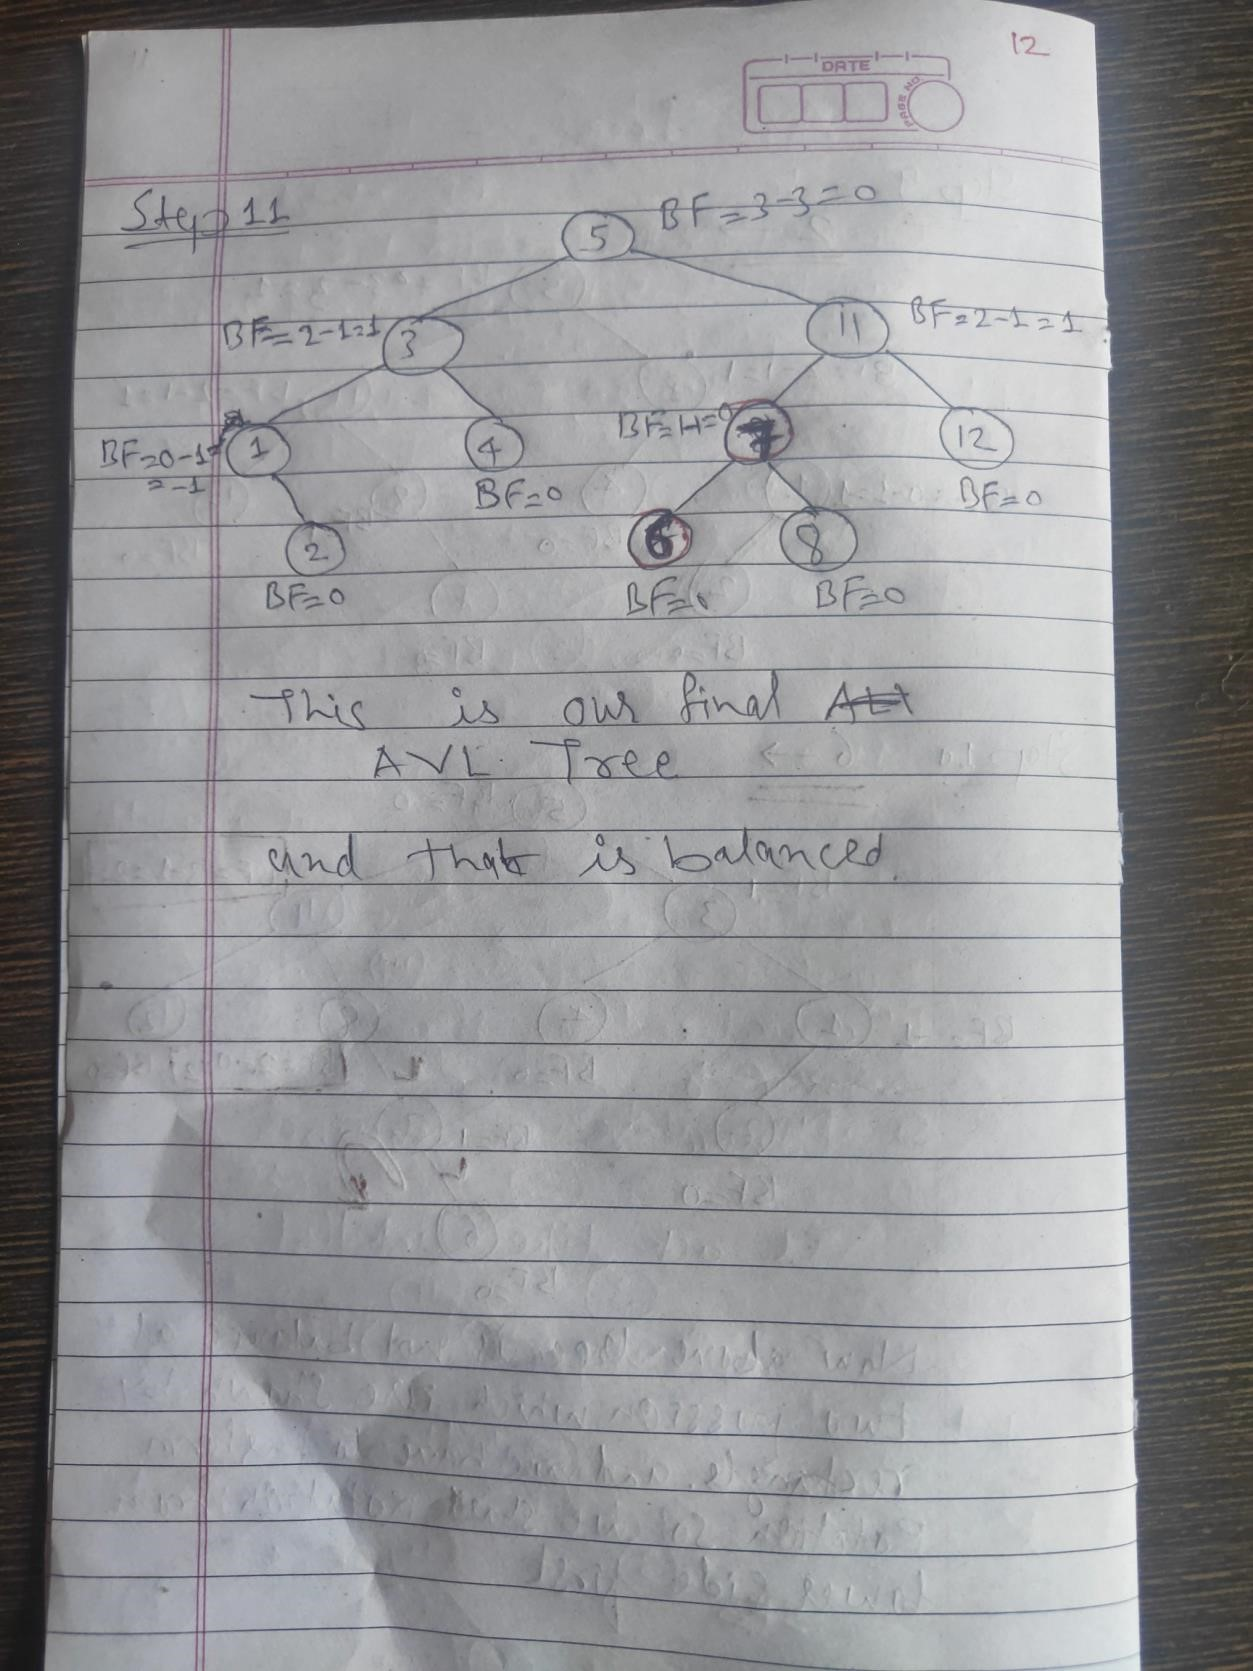 12
DATE
PAGE NO.
Step 11
5 BF=3-3=0
BF=2-1=1 3 11 BF=2-1=1
BF=0-1= 1 4 7 12
=-1 BF=0 BF=0
2 6 8
BF=0 BF=0 BF=0
This is our final
AVL Tree
and that is balanced.